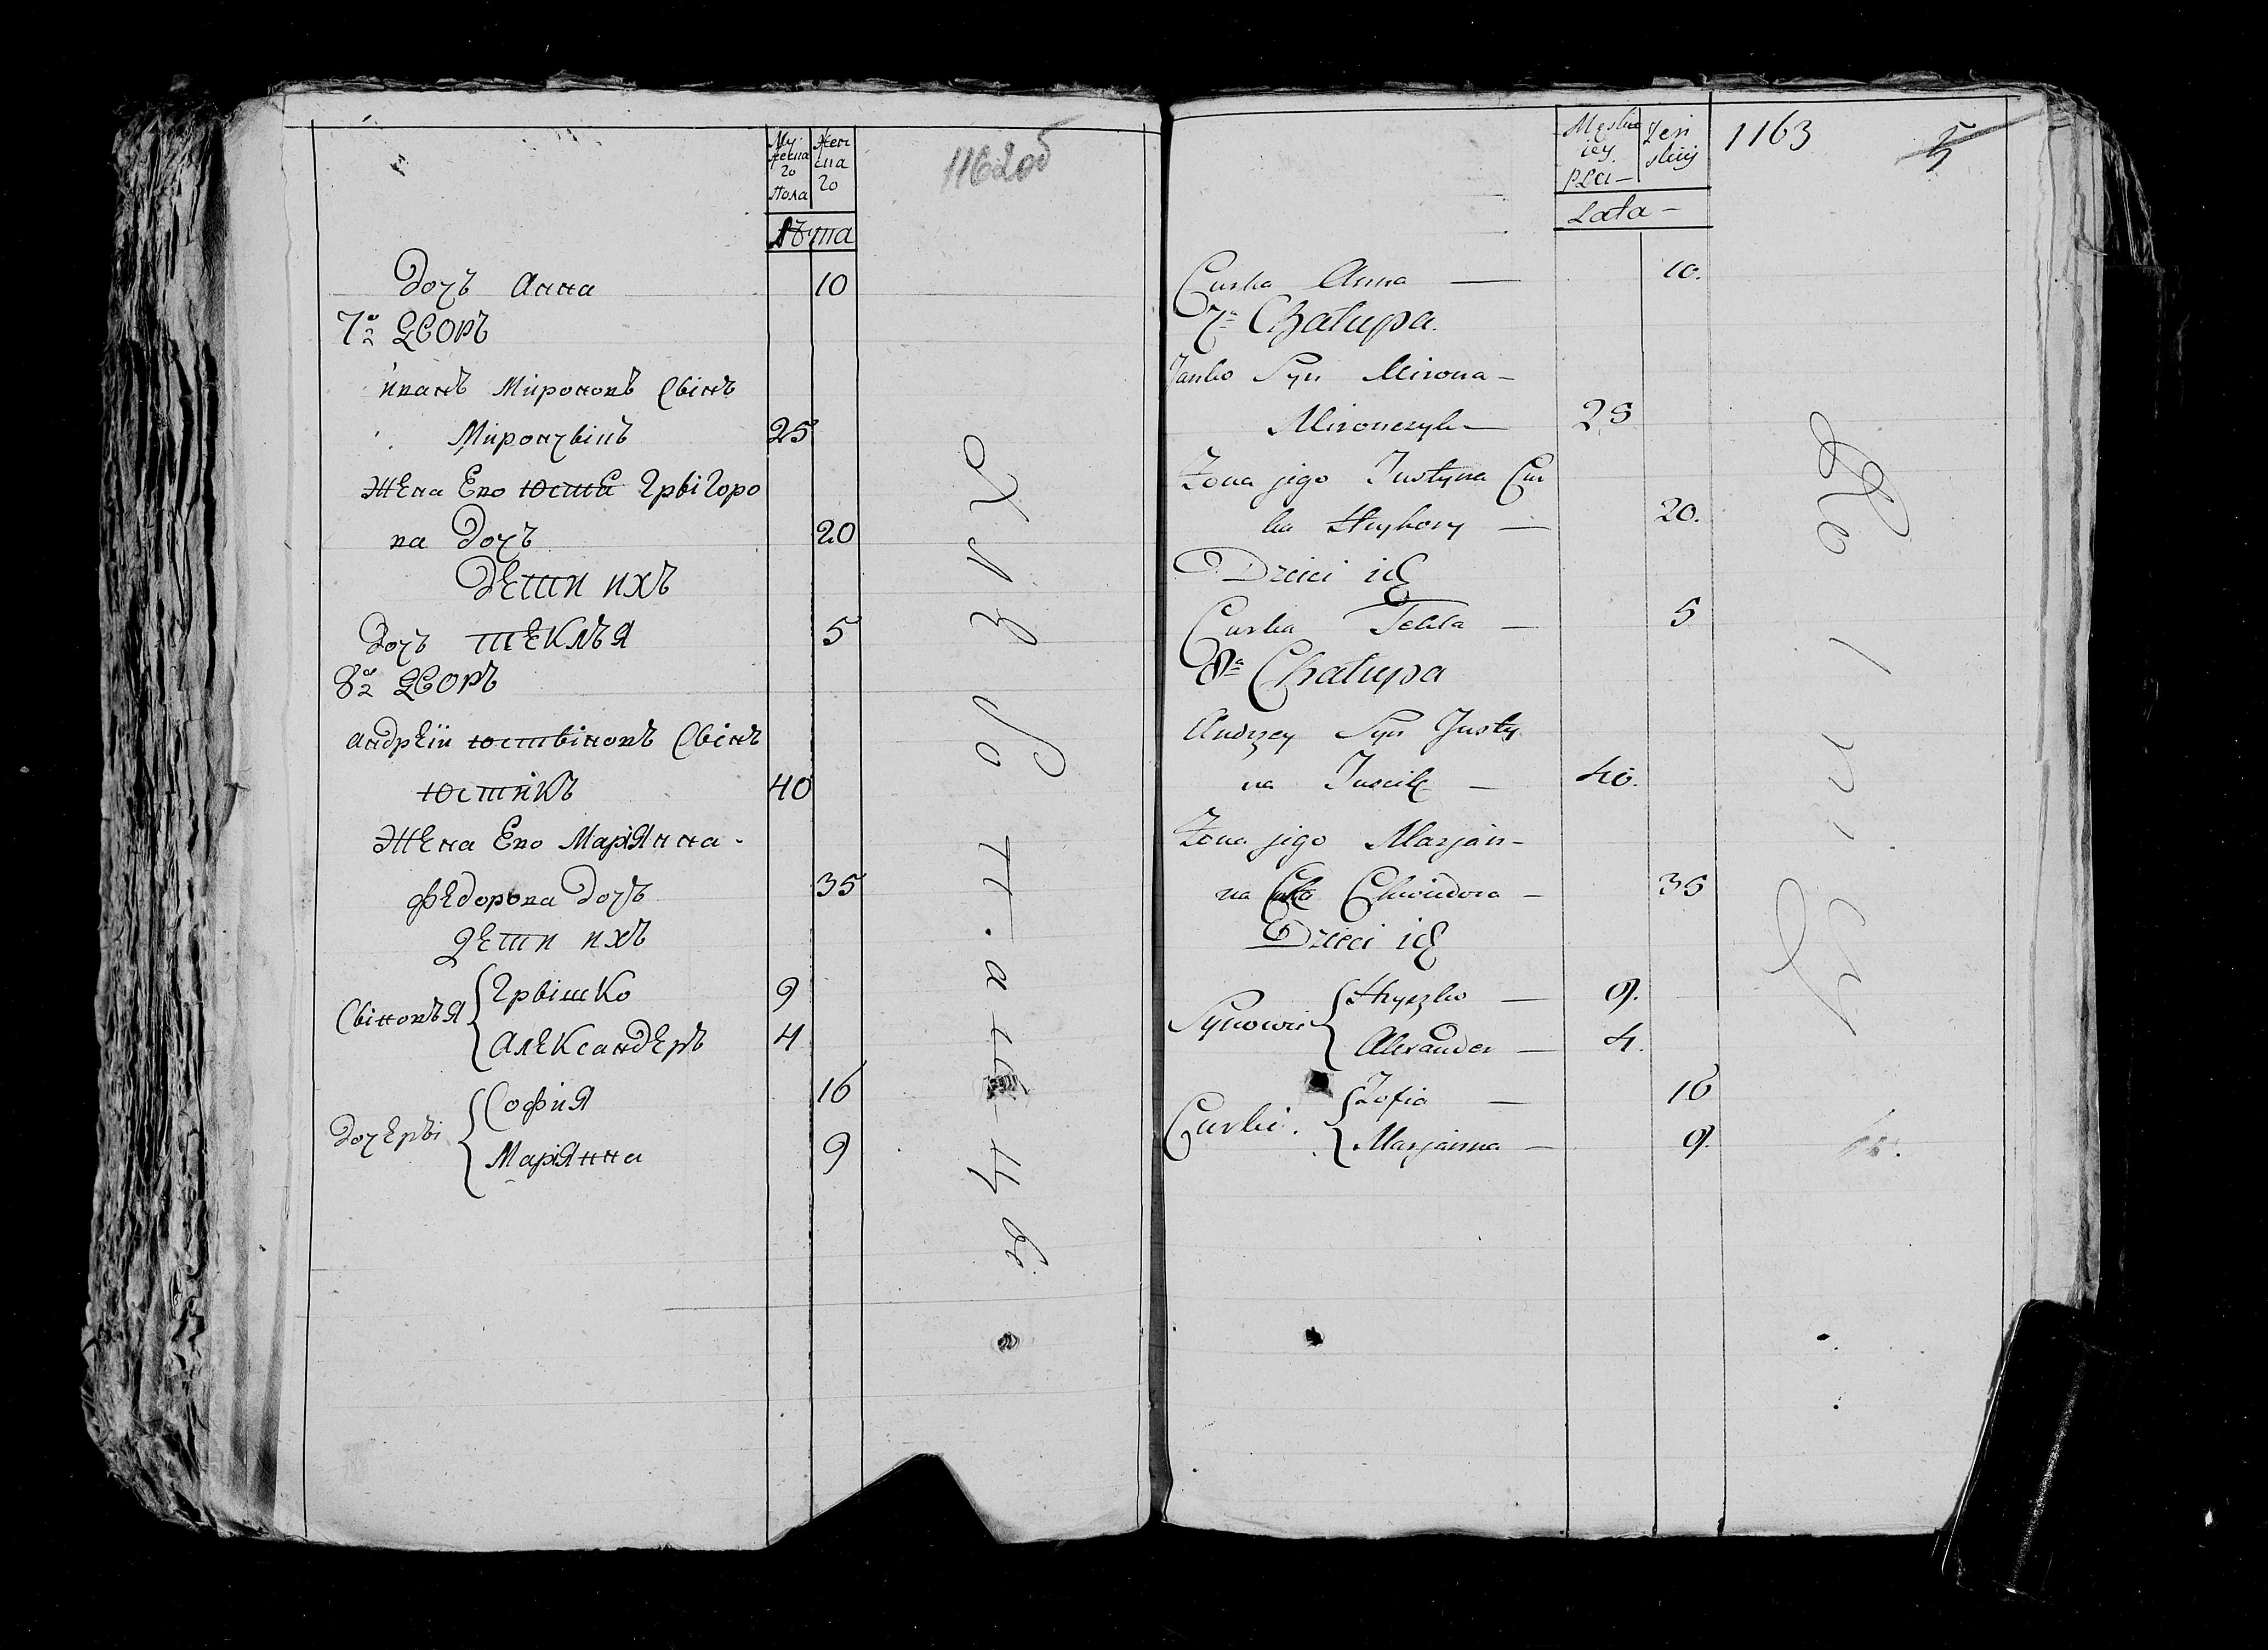 Му
жеска
го
Пола
Жен
ска
го
Лѣта
1162об
Дочъ Анна 10
7й Дворъ
Иванъ Мироновъ Сынъ
Мирончыкъ 25
Жена Ево Юсти Грыгоро
ва Дочъ 20
Дети ихъ
Дочъ Теклья 5
8й Дворъ
Андрей Юстыновъ Сынъ
Юстикъ 40
Жена Ево Маріянна
Федорова Дочъ 35
Дети ихъ
Сыновья
Грышко 9
Александеръ 4
Дочеры
София 16
Маріянна 9
Męski
iey
Płci
Żeń
skiej
Lata
1163
5
Curka Anna 10.
7a Chałupa.
Janko Syn Mirona
Mironczyk 25
Żona jego Justyna Cur
ka Hryhory 20.
Dzieci ich
Curka Tekla 5
8a Chałupa
Andrzey Syn Justy
na Juscik 40.
Żona jego Marjan-
na Curka Chwiedora 35
Dzieci ich
Synowie
Hryszko 9.
Alexander 4.
Curki.
Zofia 16
Marjanna 9.